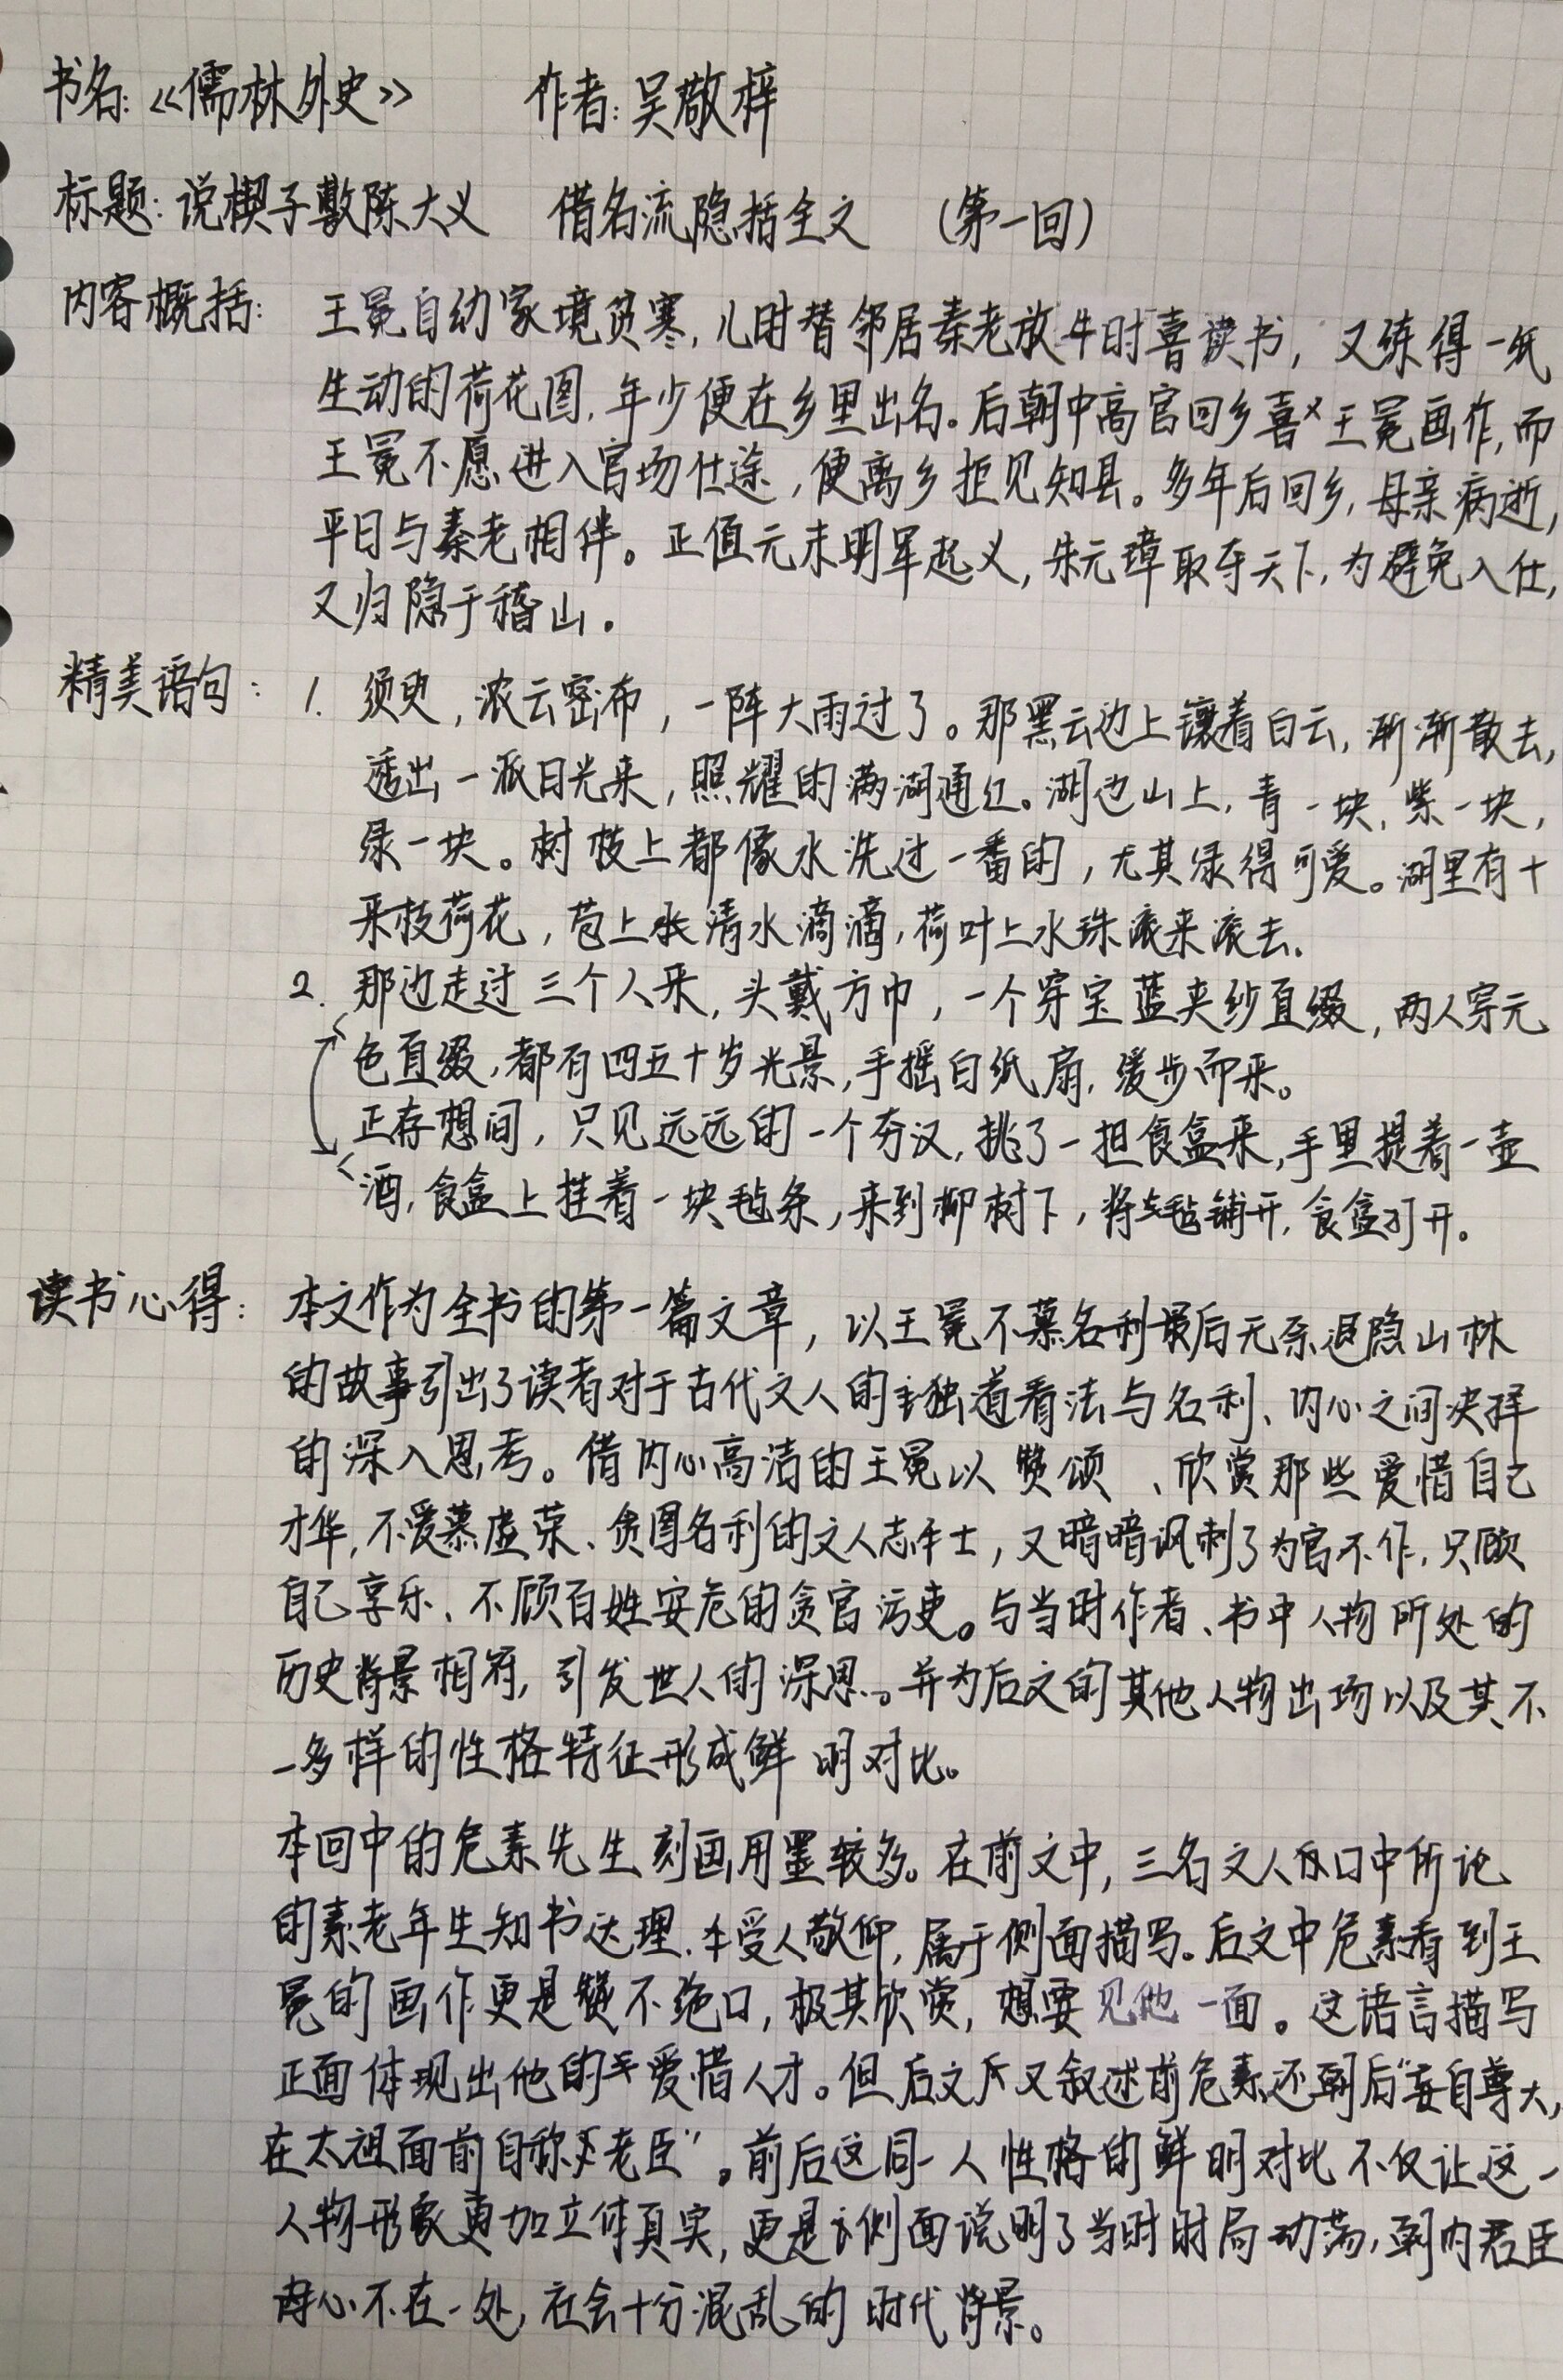 书名:《儒林外史》 作者:吴敬梓
标题:说楔子敷陈大义 借名流隐括全文 (第一回)
内容概括: 王冕自幼家境贫寒,儿时替邻居秦老放牛时喜读书,又练得一纸
生动的荷花图,年少便在乡里出名。后朝中高官回乡喜王冕画作,而
王冕不愿进入官场仕途,便离乡拒见知县。多年后回乡,母亲病逝,
平日与秦老相伴。正值元末明军起义,朱元璋取夺天下,为避免入仕,
又归隐于稽山.
精美语句: 1. 须臾,浓云密布,一阵大雨过了。那黑云边上镶着白云,渐渐散去,
透出一派日光来,照耀的满湖通红。湖边山上,青一块,紫一块,
绿一块。树枝上都像水洗过一番的,尤其绿得可爱。湖里有十
来枝荷花,苞上清水滴滴,荷叶上水珠滚来滚去.
2. 那边走过三个人来,头戴方巾,一个穿宝蓝夹纱直缀,两人穿元
色直缀,都有四五十岁光景,手摇白纸扇,缓步而来。
正存想间,只见远远的一个夯汉,挑了一担食盒来,手里提着一壶
酒,食盒上挂着一块毡条,来到柳树下,将毡铺开,食盒打开。
读书心得: 本文作为全书的第一篇文章,以王冕不慕名利最后无奈退隐山林
的故事引出了读者对于古代文人的独道看法与名利、内心之间决择
的深入思考。借内心高洁的王冕以赞颂、欣赏那些爱惜自己
才华,不爱慕虚荣、贪图名利的文人志士,又暗暗讽刺了为官不作,只顾
自己享乐、不顾百姓安危的贪官污吏。与当时作者、书中人物所处的
历史背景相符,引发世人的深思。并为后文的其他人物出场以及其不
一多样的性格特征形成鲜明对比。
本回中的危素先生刻画用墨较多。在前文中,三名文人口中所论
的素老年生知书达理,受人敬仰,属于侧面描写。后文中危素看到王
冕的画作更是赞不绝口,极其欣赏,想要见他一面。这语言描写
正面体现出他的爱惜人才。但后文又叙述前危素还朝后“妄自尊大,
在太祖面前自称老臣”。前后这同一人性格的鲜明对比不仅让这一
人物形象更加立体真实,更是侧面说明了当时时局动荡,朝内君臣
心不在一处,社会十分混乱的时代背景。